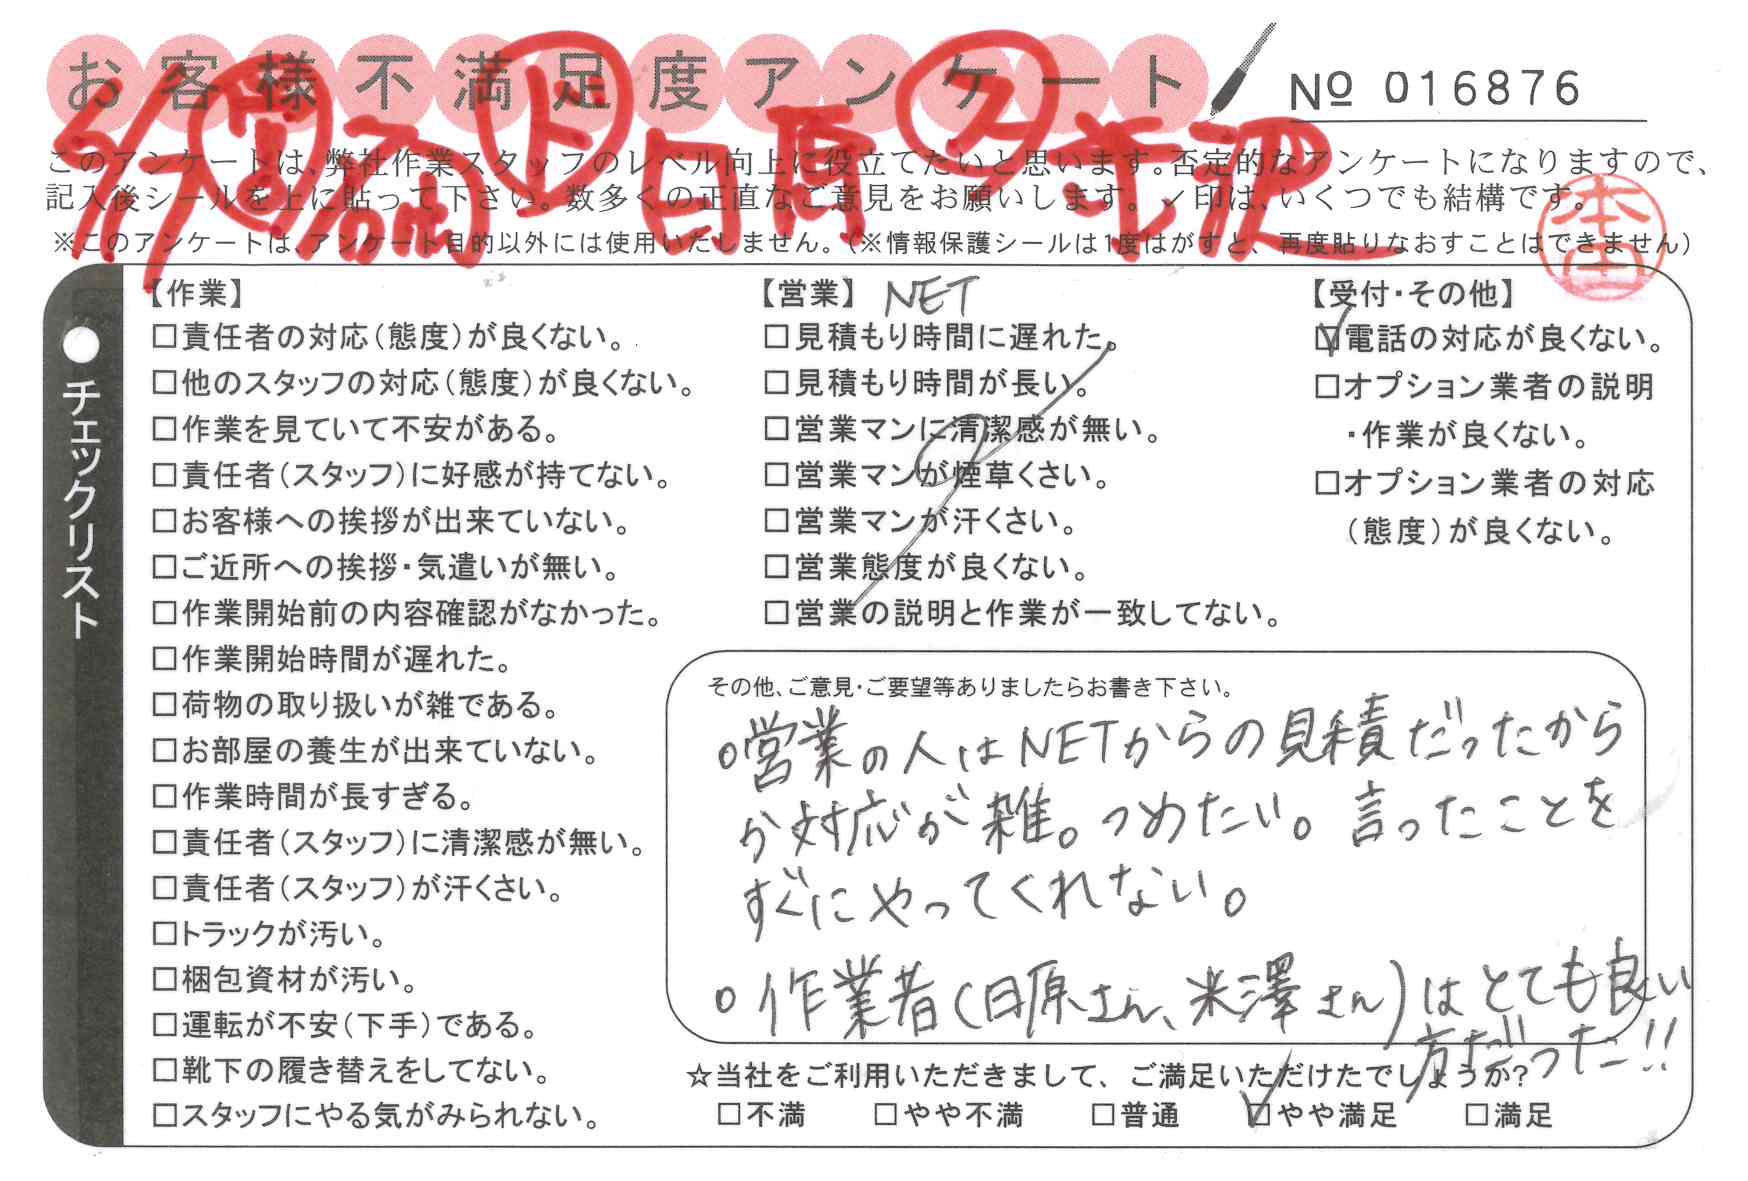 お客様不満足度アンケート
№ 016876
このアンケートは、弊社作業スタッフのレベル向上に役立てたいと思います。否定的なアンケートになりますので、
記入後シールを上に貼って下さい。数多くの正直なご意見をお願いします。✓印は、いくつでも結構です。
※このアンケートは、アンケート目的以外には使用いたしません。（※情報保護シールは1度はがすと、再度貼りなおすことはできません）
営 ド 日原 ス 米沢
本田
●チェックリスト
【作業】
□責任者の対応（態度）が良くない。
□他のスタッフの対応（態度）が良くない。
□作業を見ていて不安がある。
□責任者（スタッフ）に好感が持てない。
□お客様への挨拶が出来ていない。
□ご近所への挨拶・気遣いが無い。
□作業開始前の内容確認がなかった。
□作業開始時間が遅れた。
□荷物の取り扱いが雑である。
□お部屋の養生が出来ていない。
□作業時間が長すぎる。
□責任者（スタッフ）に清潔感が無い。
□責任者（スタッフ）が汗くさい。
□トラックが汚い。
□梱包資材が汚い。
□運転が不安（下手）である。
□靴下の履き替えをしてない。
□スタッフにやる気がみられない。
【営業】 NET
□見積もり時間に遅れた。
□見積もり時間が長い。
□営業マンに清潔感が無い。
□営業マンが煙草くさい。
□営業マンが汗くさい。
□営業態度が良くない。
□営業の説明と作業が一致してない。
【受付・その他】
☑電話の対応が良くない。
□オプション業者の説明
・作業が良くない。
□オプション業者の対応
（態度）が良くない。
その他、ご意見・ご要望等ありましたらお書き下さい。
○営業の人はNETからの見積だったから
か対応が雑。つめたい。言ったことを
すぐにやってくれない。
○作業者（日原さん、米澤さん）はとても良い
方だった!!
☆当社をご利用いただきまして、ご満足いただけたでしょうか?
□不満 □やや不満 □普通 ☑やや満足 □満足